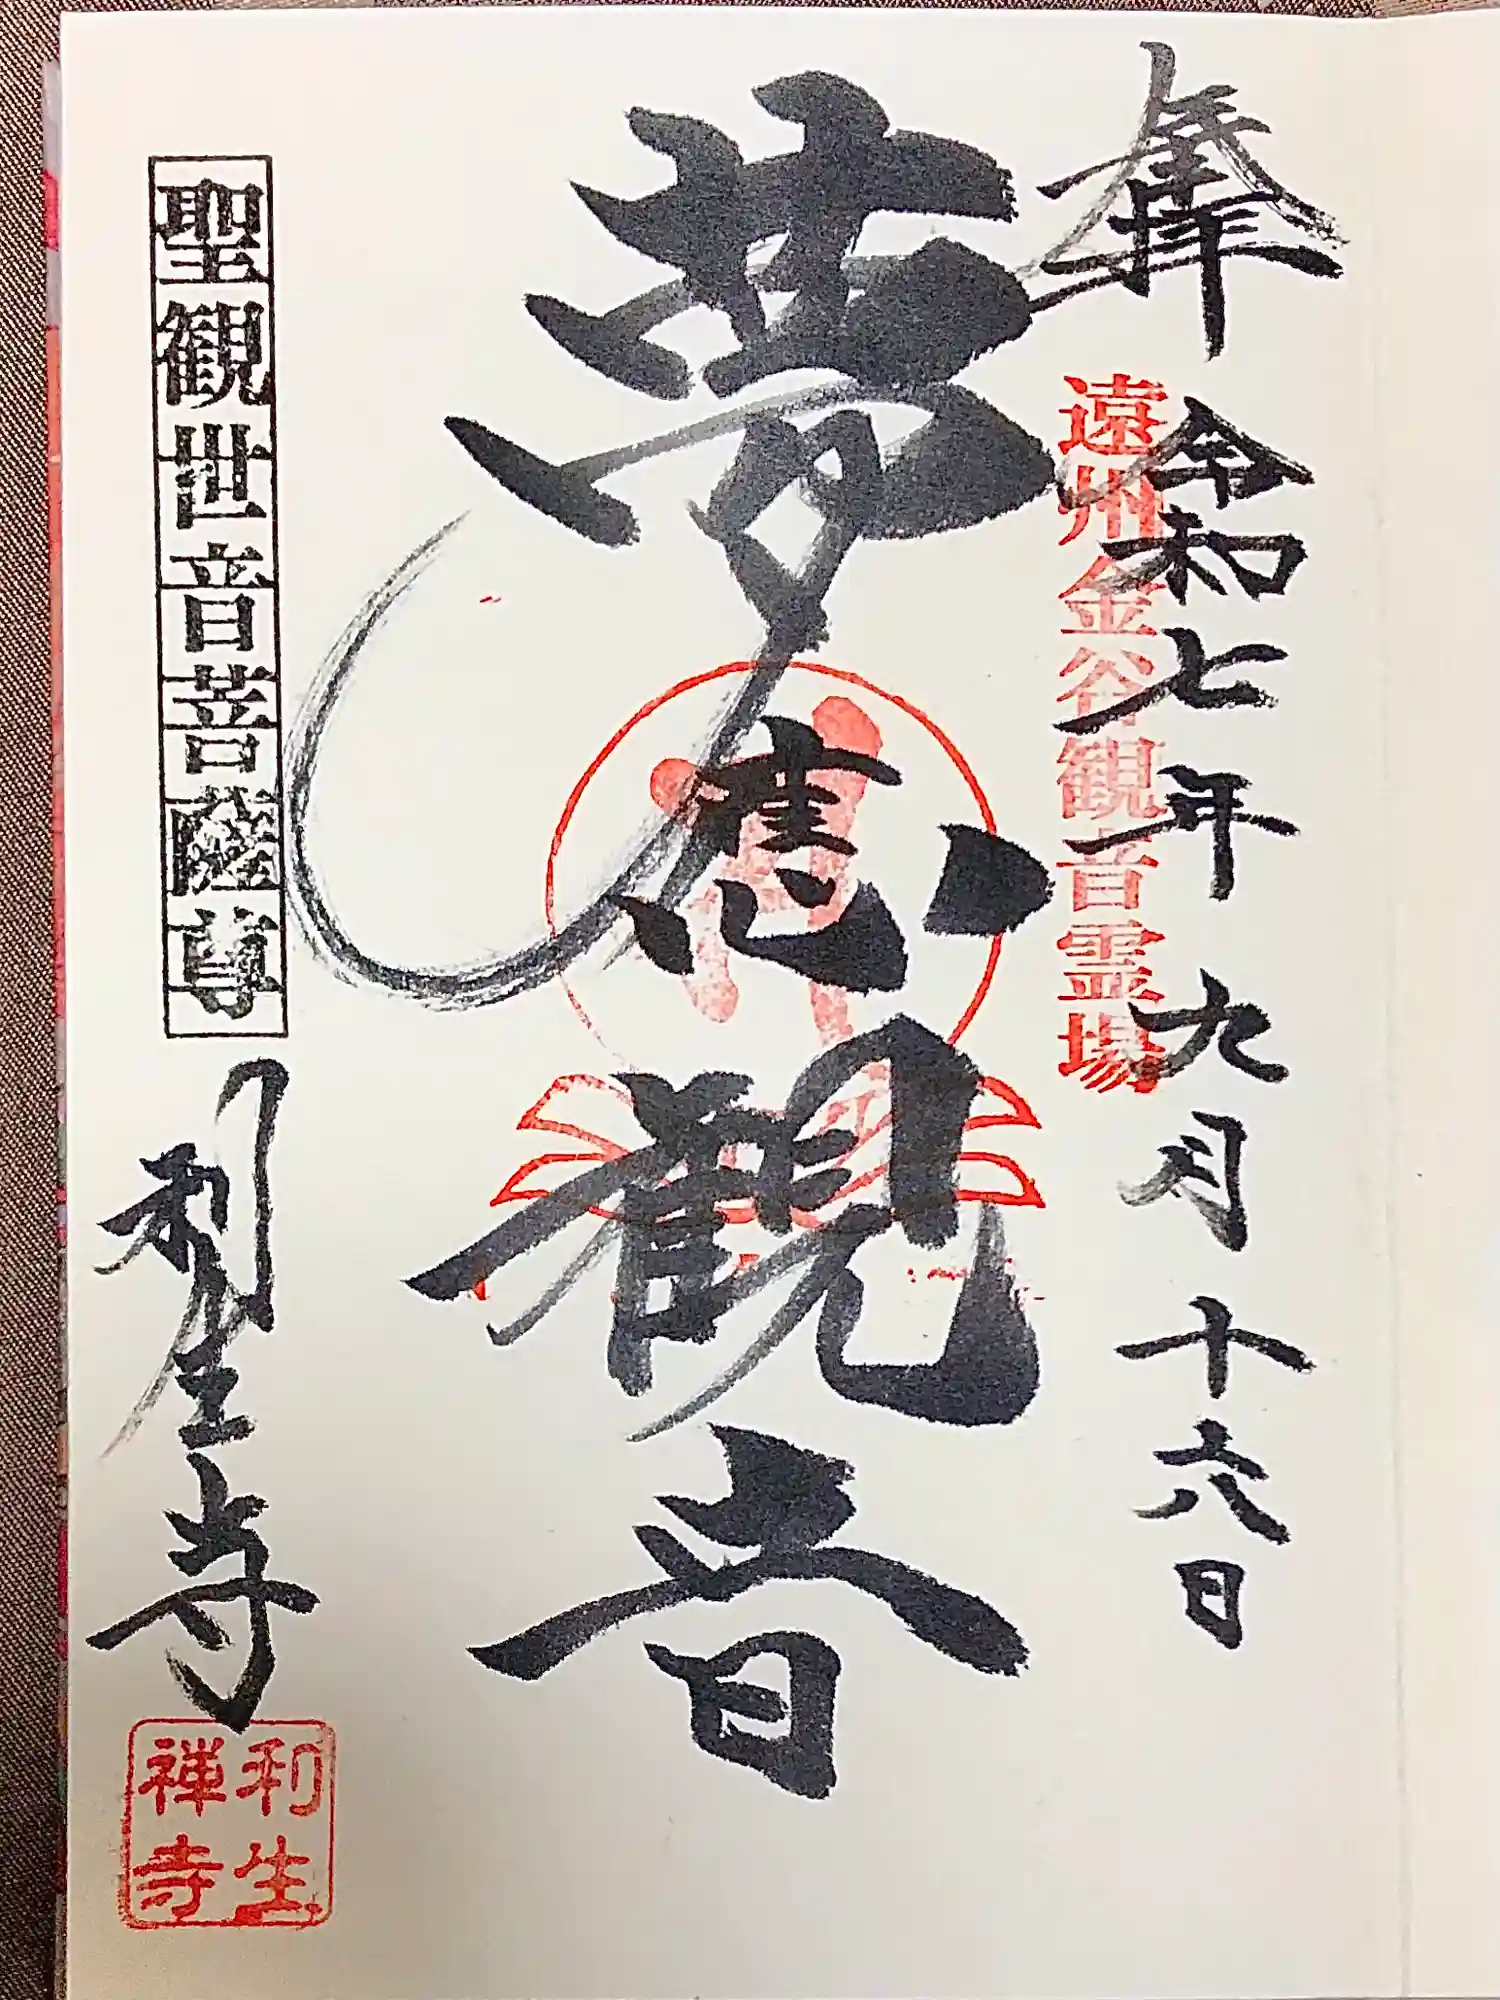 奉拝 令和七年九月十六日
遠州金谷観音霊場
夢 観音
聖観世音菩薩尊
利生寺
利生
禅寺